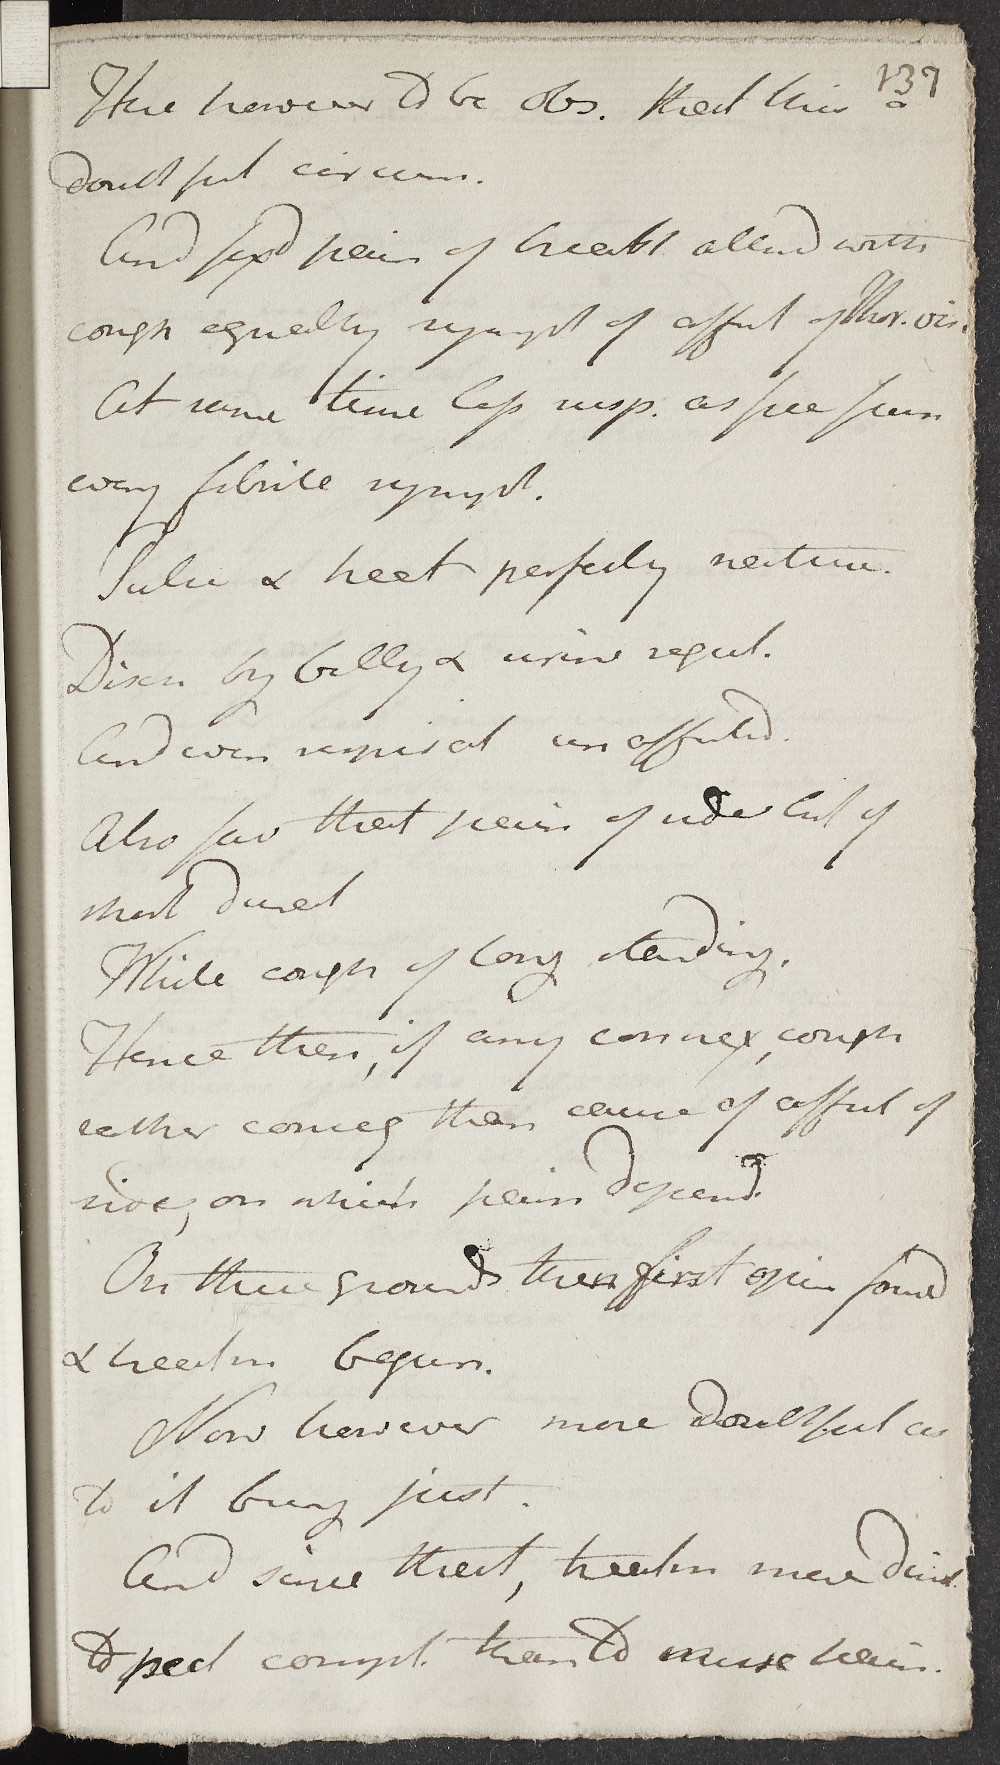 137
Here however to be obs. that this a
doubtful circum.
And fixd pain of breast attend with
cough equally sympt of affect of Thor. vis.
At same time less susp. as free from
every febrile sympt.
Pulse & heat perfectly natur.
Disch by belly & urine regul.
And even respirat unaffected.
Also far that pain of side but of
short durat
While cough of long standing.
Hence then, if any connex, cough
rather conseq than cause of affect of
side, on which pain depend
On these grounds then first opin formd
& treatm begun.
Now however more doubtful as
to it being just.
And since that, treatm more direct
to pect compt. than to muse